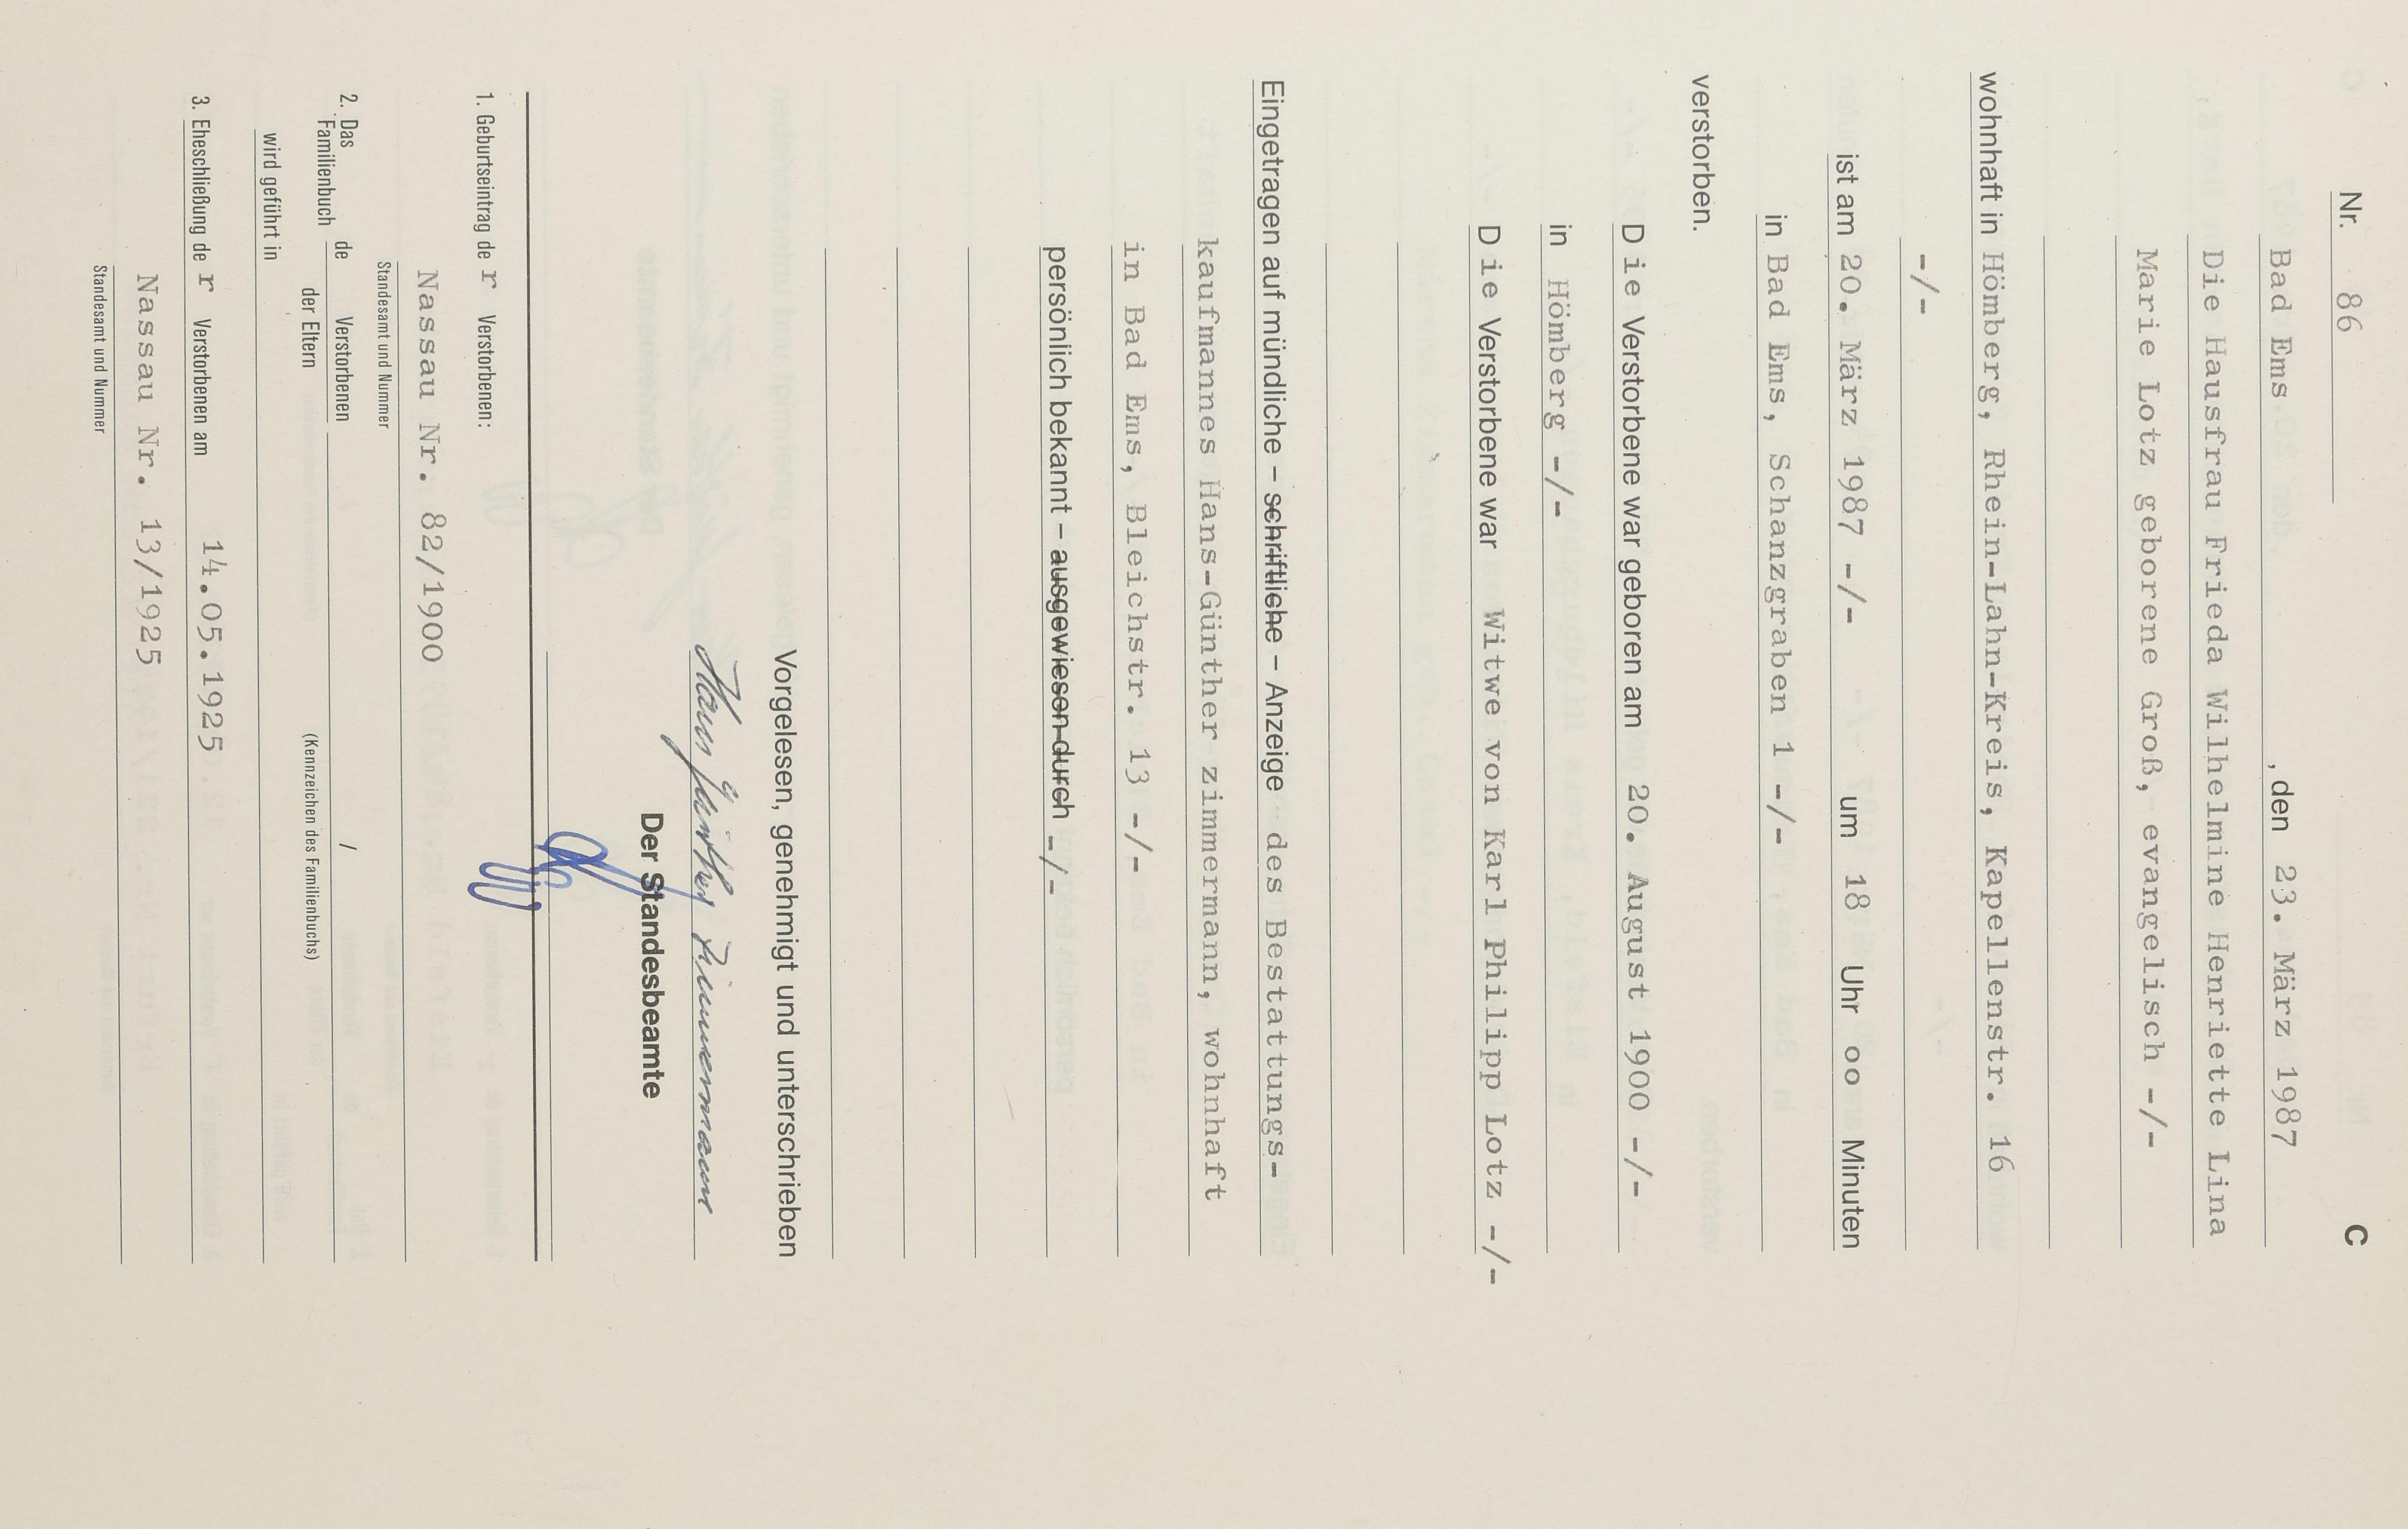 C
Nr. 86
Bad Ems , den 23. März 1987
Die Hausfrau Frieda Wilhelmine Henriette Lina
Marie Lotz geborene Groß, evangelisch -/-
wohnhaft in Hömberg, Rhein-Lahn-Kreis, Kapellenstr. 16
-/-
ist am 20. März 1987 -/- um 18 Uhr oo Minuten
in Bad Ems, Schanzgraben 1 -/-
verstorben.
Die Verstorbene war geboren am 20. August 1900 -/-
in Hömberg -/-
Die Verstorbene war Witwe von Karl Philipp Lotz -/-
Eingetragen auf mündliche – schriftliche – Anzeige des Bestattungs-
kaufmannes Hans-Günther zimmermann, wohnhaft
in Bad Ems, Bleichstr. 13 -/-
persönlich bekannt – ausgewiesen durch -/-
Vorgelesen, genehmigt und unterschrieben
Hans Günther Zimmermann
Der Standesbeamte
1. Geburtseintrag der Verstorbenen:
Nassau Nr. 82/1900
Standesamt und Nummer
2. Das Familienbuch de Verstorbenen /
der Eltern (Kennzeichen des Familienbuchs)
wird geführt in
3. Eheschließung der Verstorbenen am 14.05.1925
Nassau Nr. 13/1925
Standesamt und Nummer